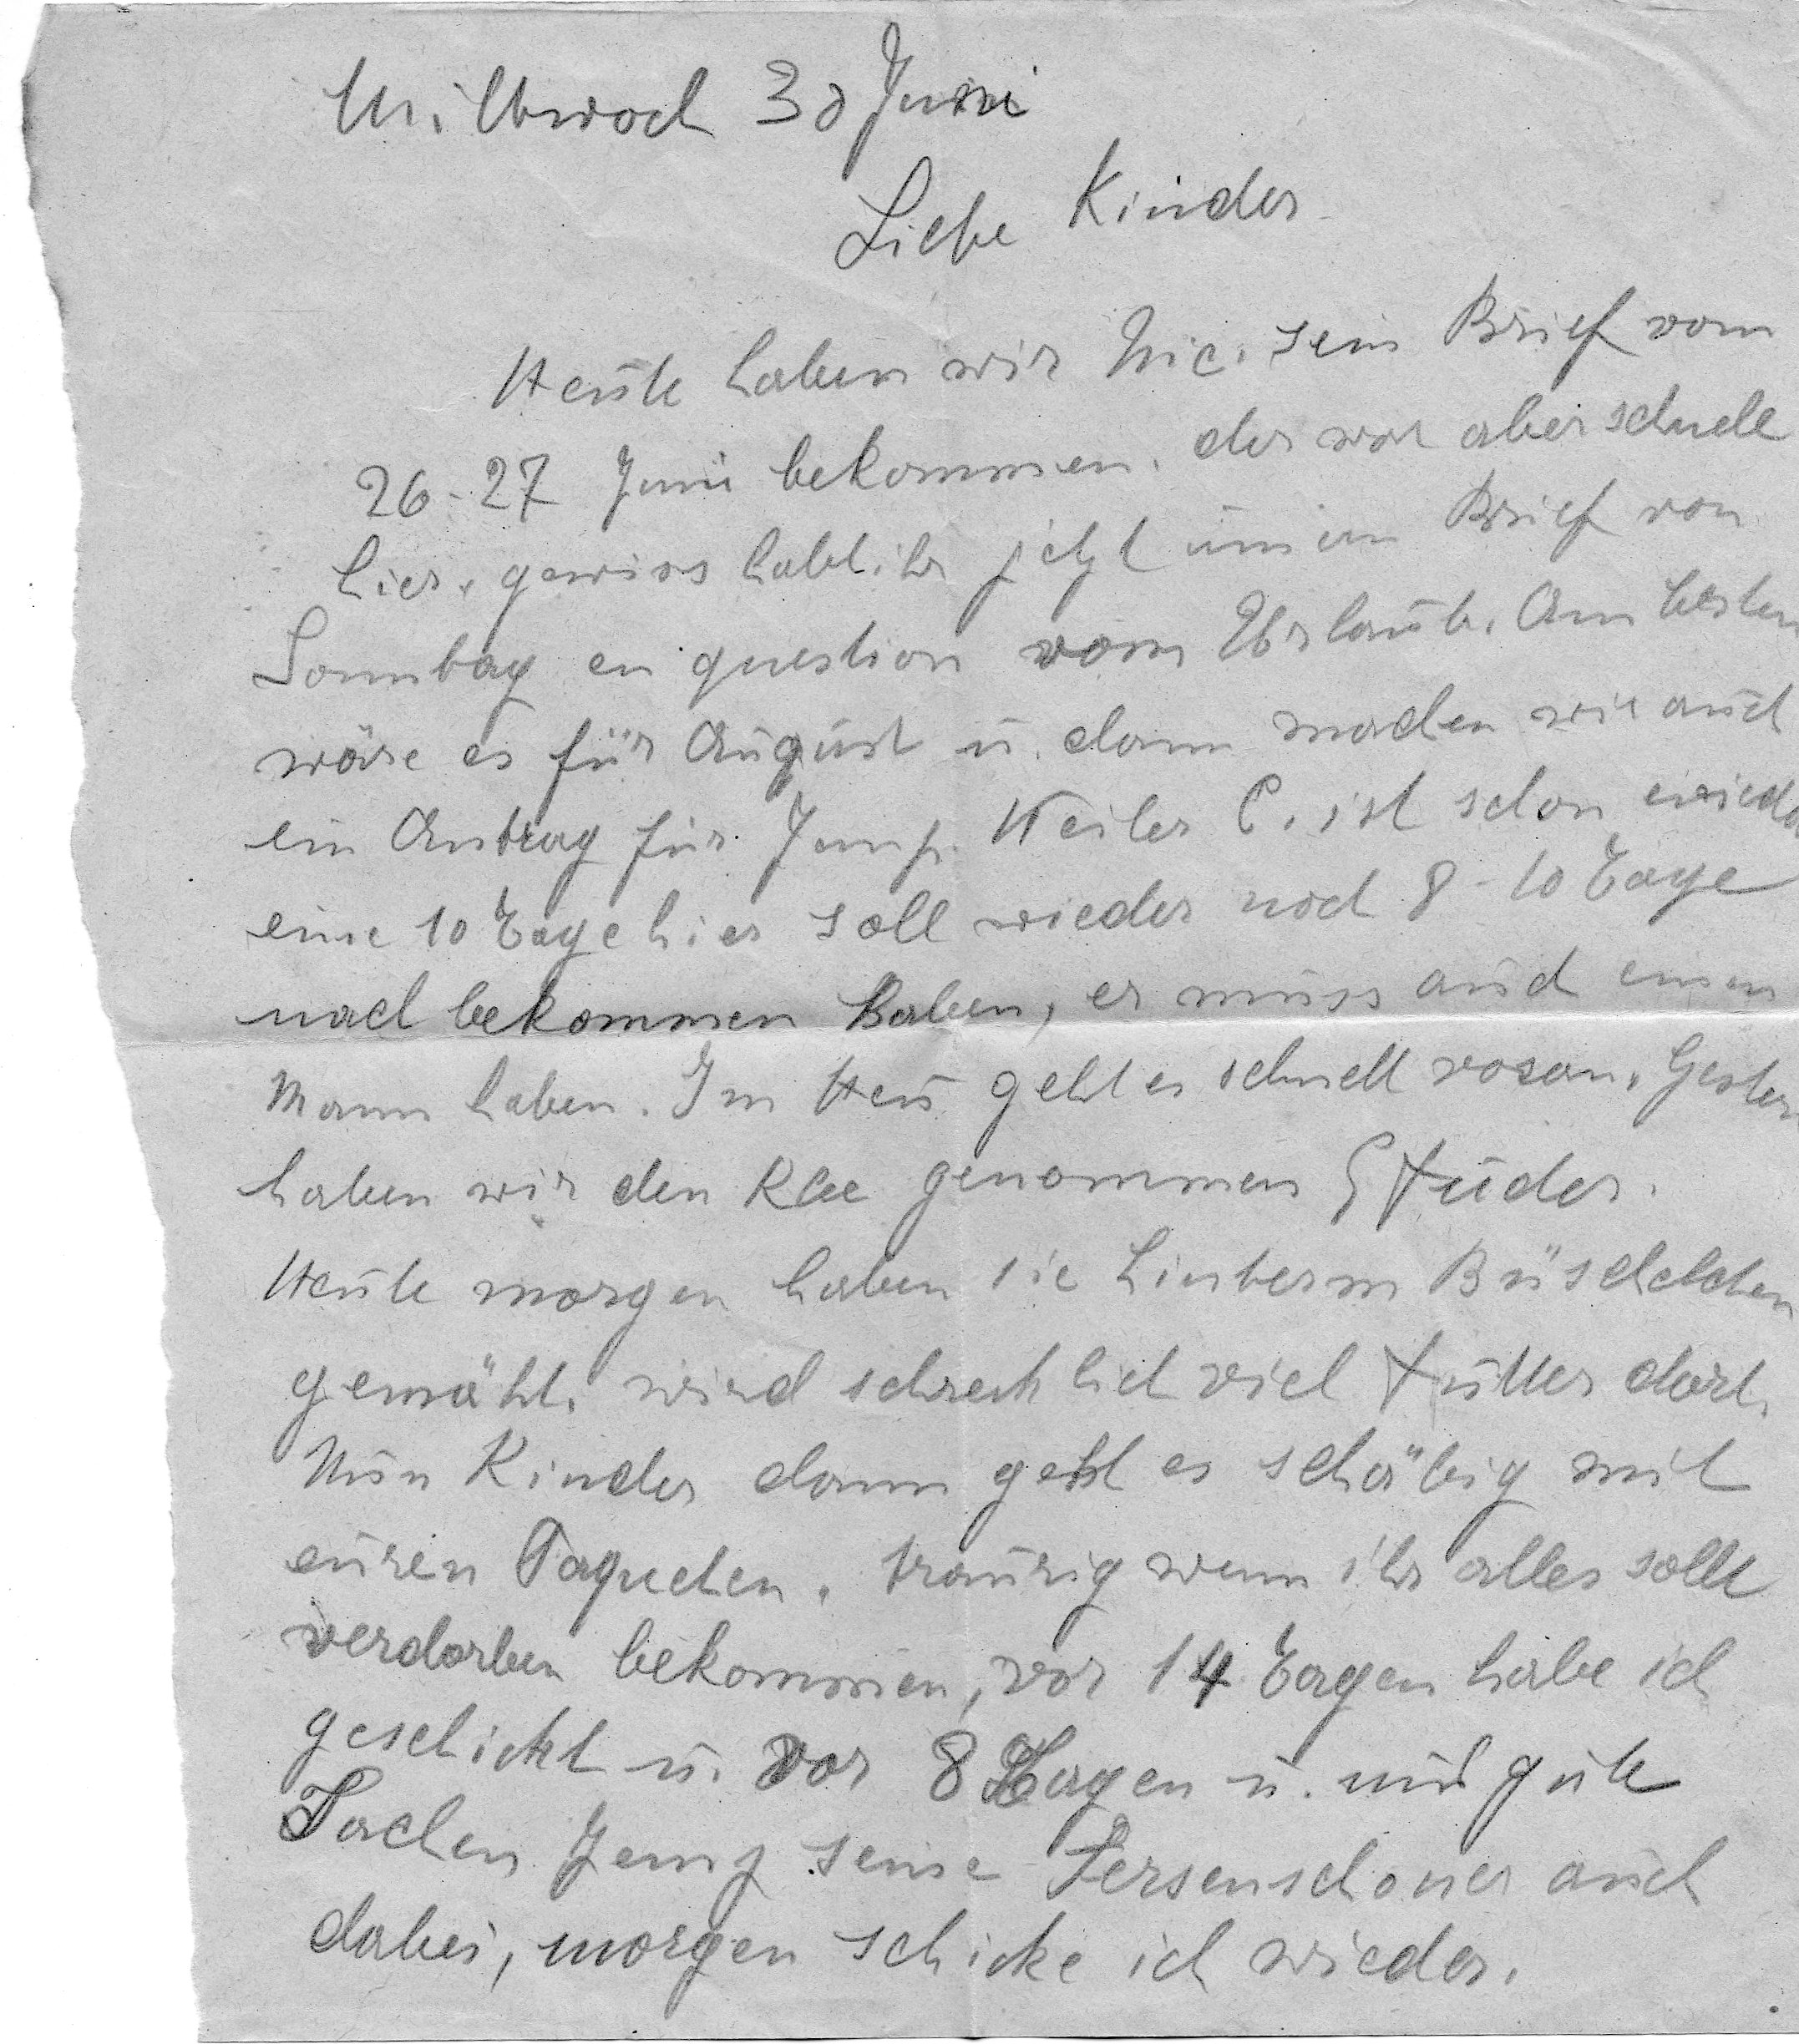 Mittwoch 30 Juni
Liebe Kinder
Heute haben wir Nic. sein Brief vom
26-27 Juni bekommen. der war aber schnell
hier. gewiss habt ihr jetzt unsern Brief von
Sonntag en question vom Urlaub. Am besten
wäre es für August u. dann machen wir auch
ein Antrag für Jemp. Weiler C. ist schon wieder
eine 10 Tage hier soll wieder noch 8-10 Tage
nach bekommen haben, er muss auch einen
Mann haben. Im Heu geht es schnell voran. Gestern
haben wir den Klee genommen
Heute morgen haben sie hinterm Büschelchen
gemäht. wird schrecklich viel Futter dort.
Nun Kinder dann geht es schäbig mit
euren Paqueten. traurig wenn ihr alles sollt
verdorben bekommen, vor 14 Tagen habe ich
geschickt u. vor 8 Tagen u. nur gute
Sachen Jemp seine Fersenschoner auch
dabei, morgen schicke ich wieder.